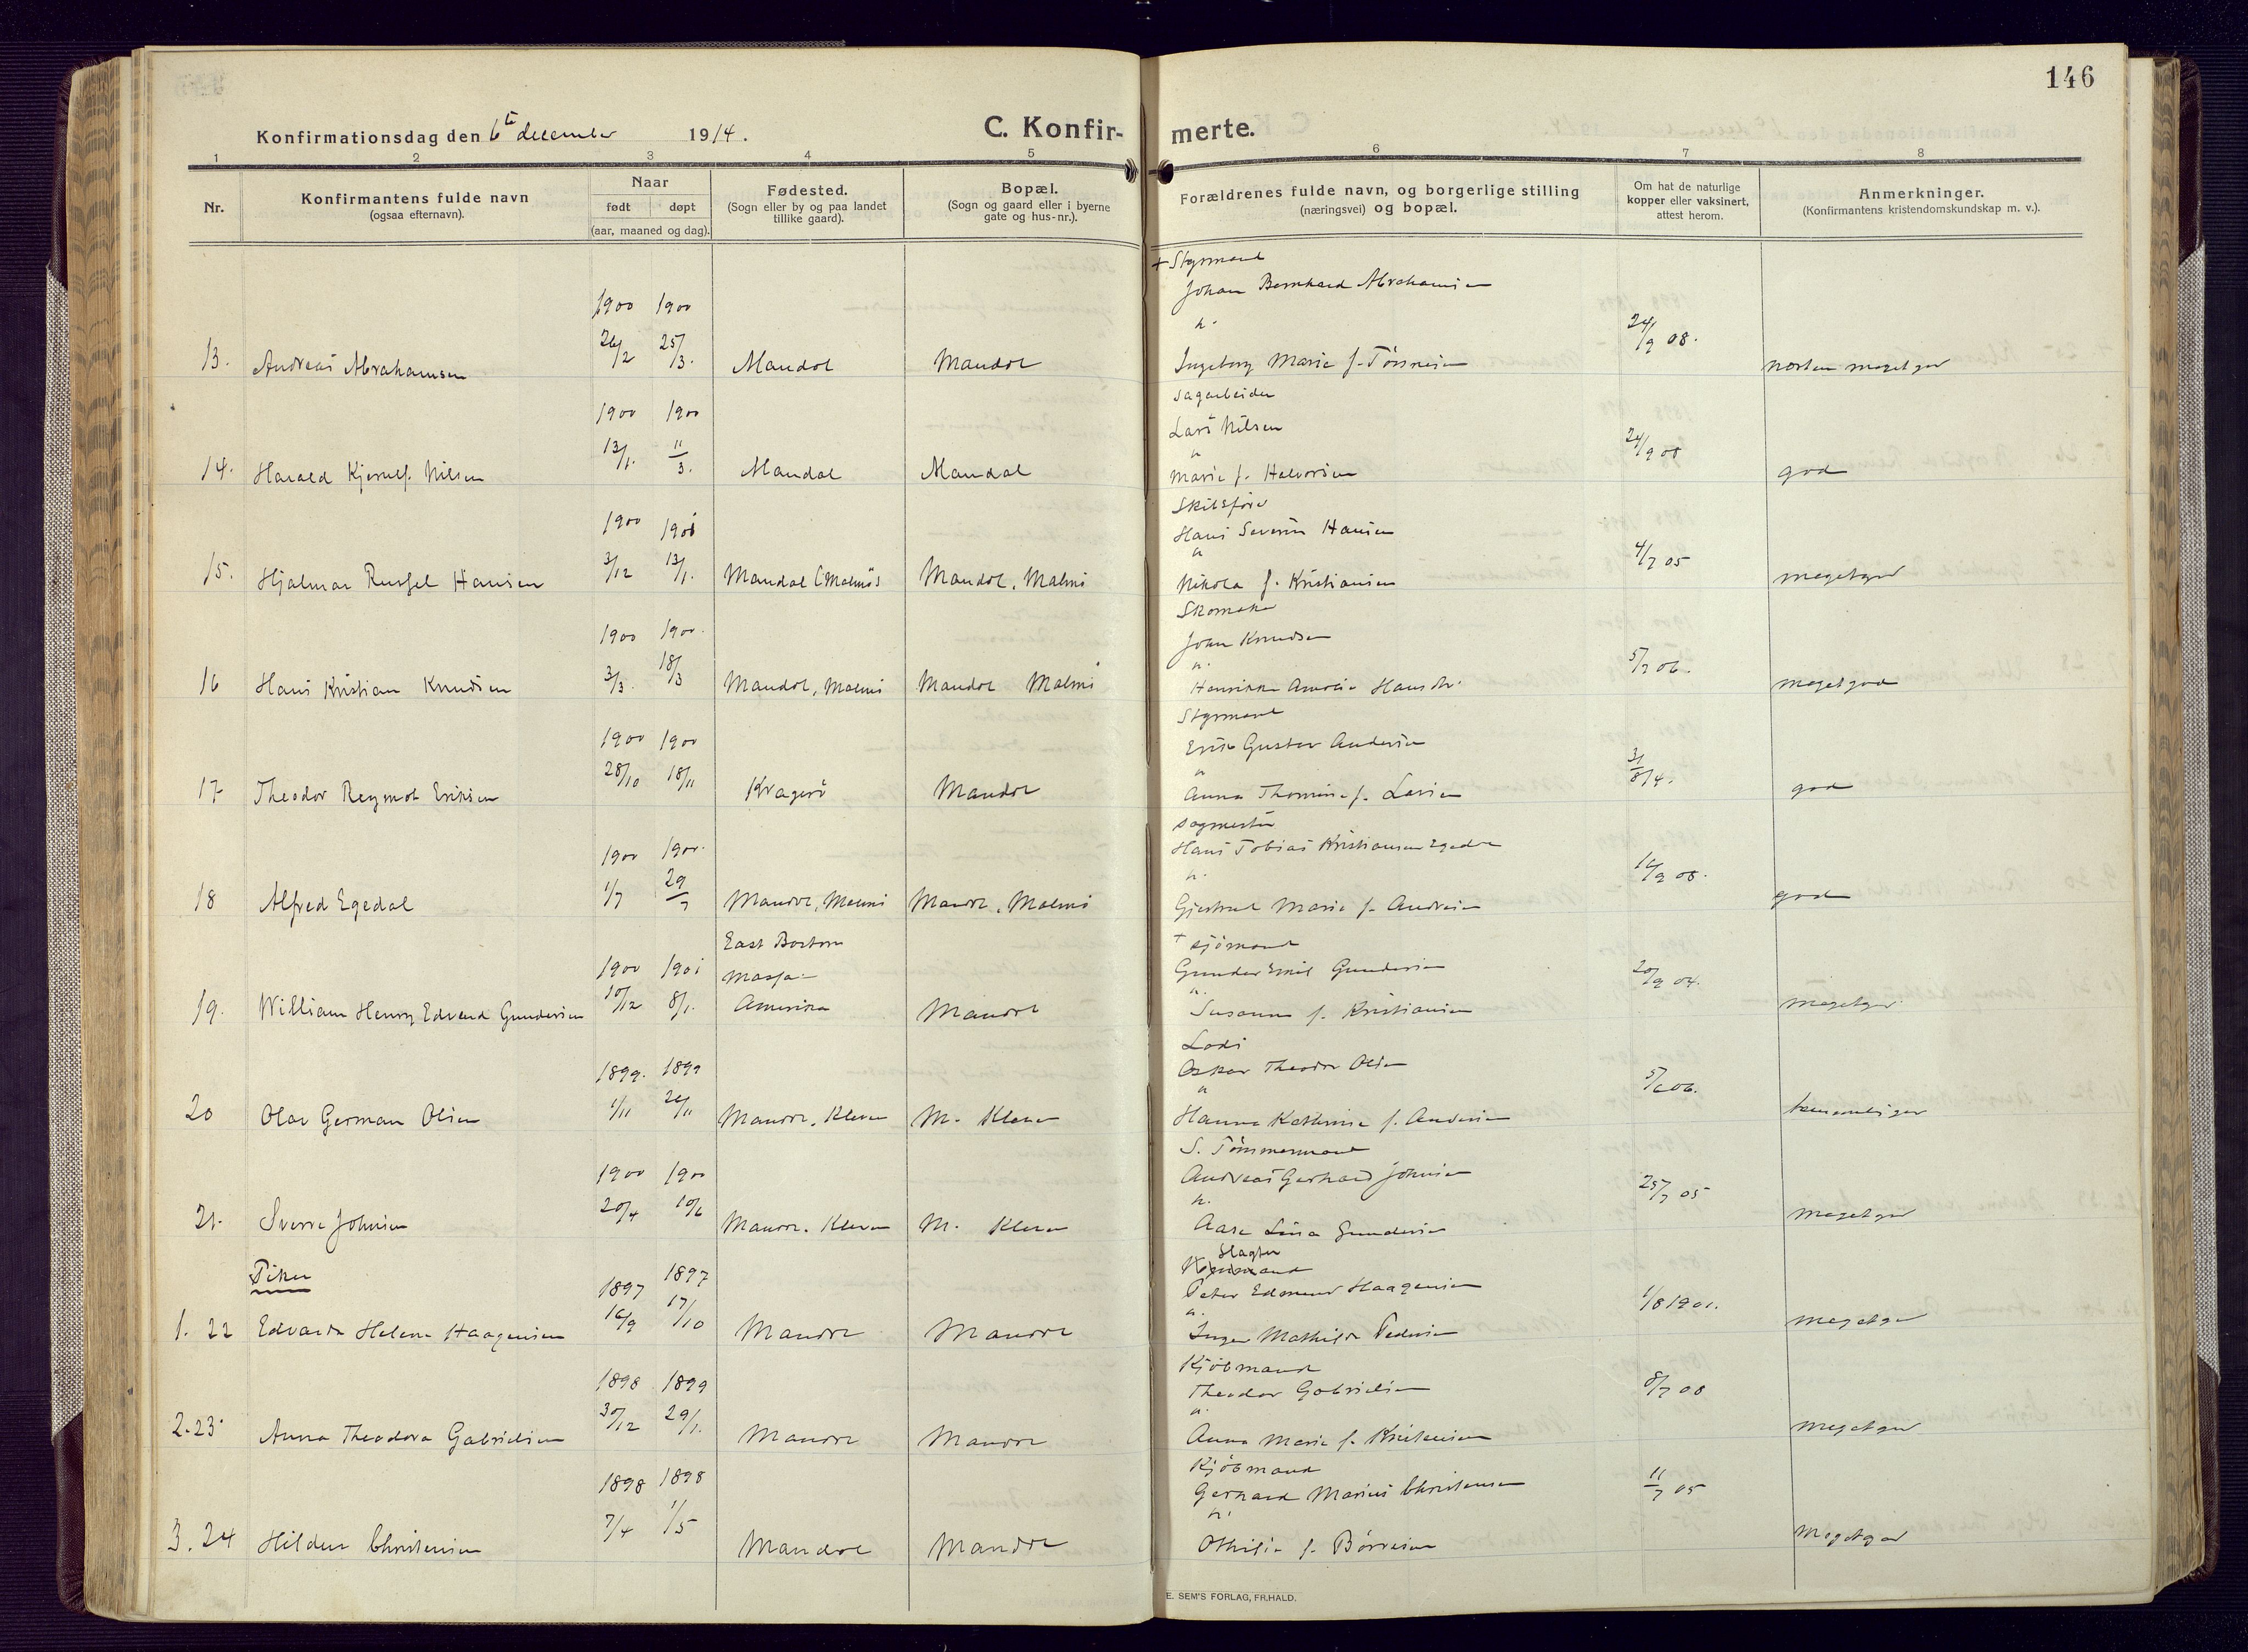 146
Konfirmationsdag den 6te december 1914.
C. Konfir- merte.
1 2 3 4 5 6 7 8
Nr.
Konfirmantens fulde navn
(ogsaa efternavn).
Naar
født døpt
(aar, maaned og dag).
Fødested.
(Sogn eller by og paa landet
tillike gaard).
Bopæl.
(Sogn og gaard eller i byerne
gate og hus-nr.).
Forældrenes fulde navn, og borgerlige stilling
(næringsvei) og bopæl.
Om hat de naturlige
kopper eller vaksinert,
attest herom.
Anmerkninger.
(Konfirmantens kristendomskundskap m. v.).
+ Styrmand
Johan Bernhard Abrahamsen
1900 1900
h.
13. Andreas Abrahamsen 26/2 25/3. Mandal Mandal Ingeborg Marie f. Tönnesen 24/9 08. næsten meget god
Sagarbeider
1900 1900 Lars Nilsen
14. Harald Kjerulf Nilsen 13/1. 11/3. Mandal Mandal Marie f. Halvorsen 24/9 08 god
Skibsfører
1900 1901 Hans Severin Hansen
15. Hjalmar Hansen 3/12 13/1. Mandal (Malmö) Mandal, Malmö Nikola f. Kristiansen 4/7 05 megetgod
Skomaker
1900 1900. John Knudsen
16 Hans Kristian Knudsen 3/3. 18/3 Mandal, Malmö Mandal Malmö Amalie Hansdtr. 5/7 06. megetgod
Styrmand
1900 1900 Erik Gustav Andersen
17 Theodor Eriksen 28/10 18/11 Kragerö Mandal Anna Thomine f. Larsen god
Sagmester
1900 1900. Hans Tobias Kristiansen Egedal
18 Alfred Egedal 1/7 29/7 Mandal, Malmö Mandal, Malmö Marie f. 16/9 08. god
East Boston
+ sjömand
1900 1901 Massa- Gunder Emil Gundersen
19. William Henry Edvard Gundersen 10/12 8/1. Amerika Mandal Susanne f. Kristiansen 20/9 04. megetgod
Lods
1899. 1899 Oskar Theodor Olsen
20 Olav German Olsen 1/11 26/11 Mandal, Kleven M. Kleven Hanna Kathrine f. Andersen 5/6 06. temmeliggod
S. Tömmermand
1900 1900 Andreas Gerhard Johnsen
21. Sverre Johnsen 20/4 10/6 Mandal. Kleven M. Kleven Aase Lina Gundersen 25/7 05 megetgod
Piker
Slagter
1897 1897 Peter Edmund Haagensen
1. 22 Edvarda Helene Haagensen 16/9 17/10 Mandal Mandal Inger Mathilde Pedersen 1/8 1901. megetgod
Kjöbmand
1898 1899 Theodor Gabrielsen
2. 23 Anna Theodora Gabrielsen 30/12 29/1. Mandal Mandal Anna Marie f. Kristensen 8/7 08 megetgod
Kjöbmand
1898 1898 Gerhard Marius Christensen
3. 24 Hildur Christensen 7/4 1/5 Mandal Mandal Othilie f. Börresen 11/7 05 Megetgod
E. SEM'S FORLAG, FR.HALD.